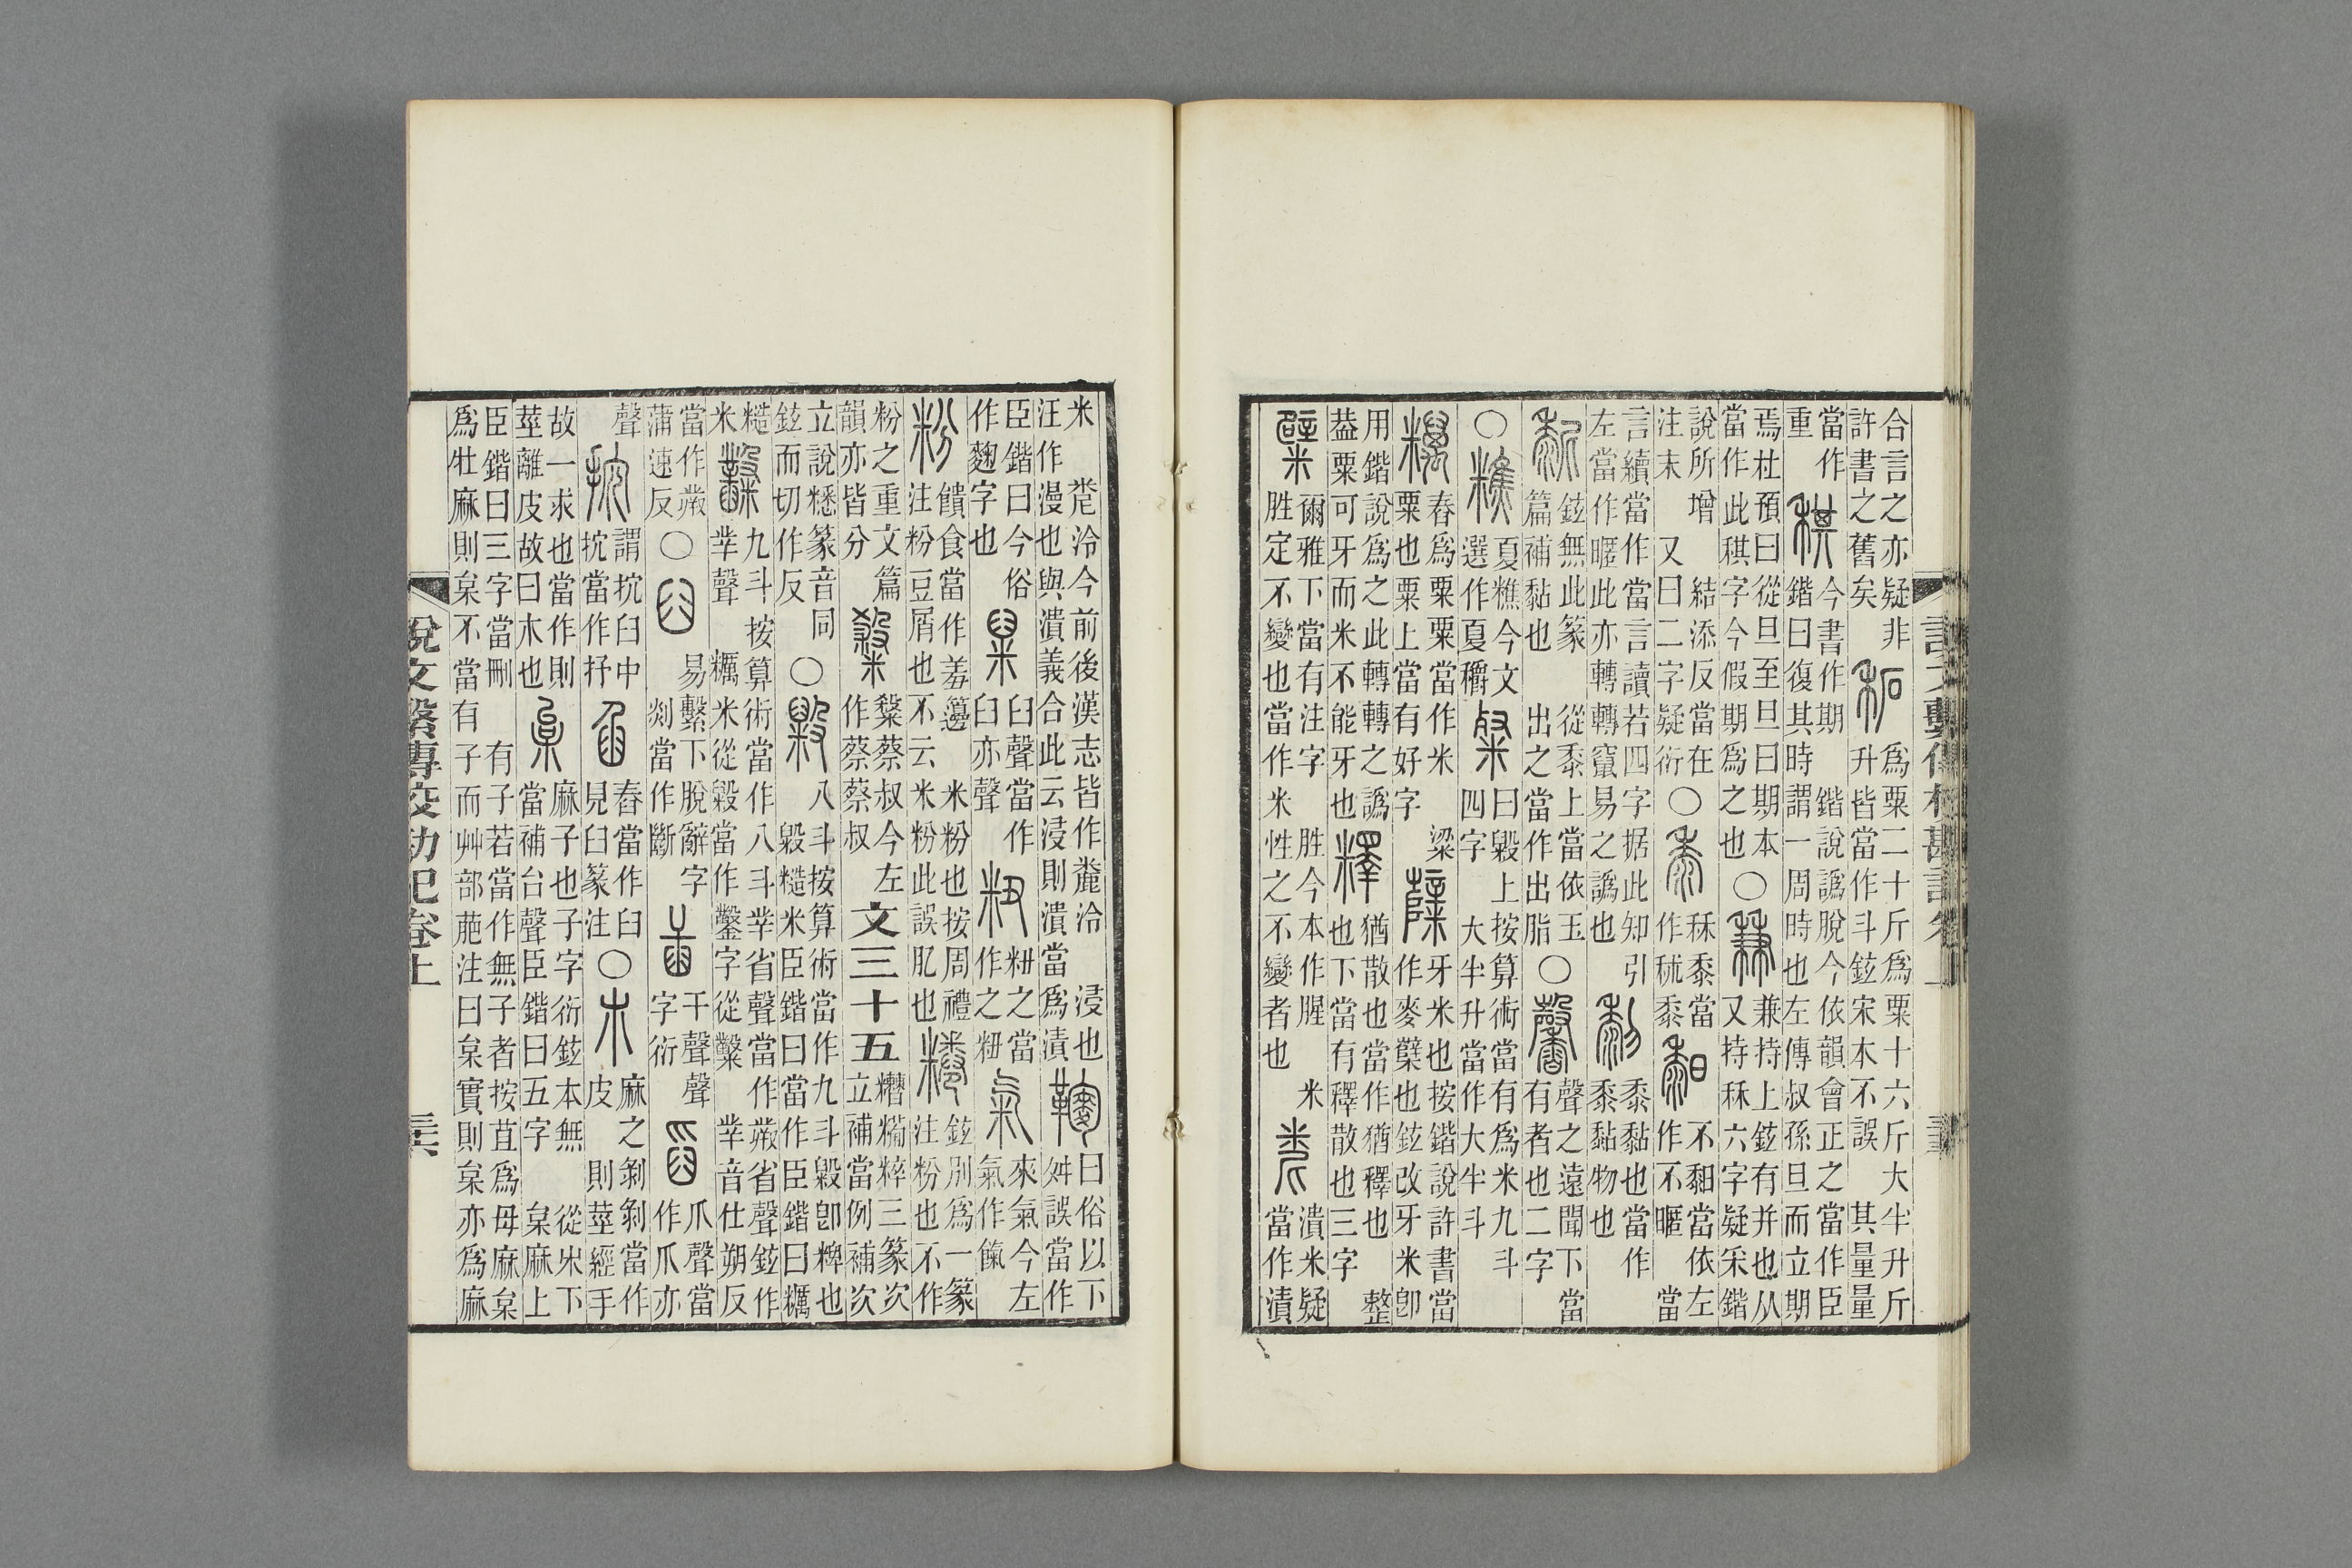 合言之亦疑非許書之舊矣 䄷 為粟二十斤為粟十六斤大半升斤升皆當作斗鉉宋本不誤 其量量
當作重 稘 今書作期 鍇說譌脫今依韻會正之當作臣鍇曰復其時謂一周時也左傳叔孫旦而立期
焉杜預曰從旦至旦曰期本當作此稘字今假期為之也 ○ 兼 兼持上鉉有并也从又持秝六字疑采鍇
說所增 結添反當在注末 又曰二字疑衍 ○ 黍 秝黍當作秫黍 䵑 不䵑當依左作不暱 當
言續當作當言讀若四字据此知引左當作暱此亦轉轉竄易之譌也 黍黏也當作黍黏物也
鉉無此篆 從黍上當依玉篇補黏也 出之當作出脂 ○ 馨 聲之遠聞下當有者也二字
○ 糕 夏糕今文選作夏穛 粲 曰毇上按算術當有為米九斗四字 大半升當作大半斗
糲 舂為粟粟當作米粟也粟上當有好字 粱 糱 牙米也按鍇說許書當作麥櫱也鉉改牙米卽
用鍇說為之此轉轉之譌葢粟可牙而米不能牙也 釋 猶散也當作猶釋也 整也下當有釋散也三字
糪 爾雅下當有注字 胜今本作腥 米胜定不變也當作米性之不變者也 潰米疑當作漬
說文繫傳校勘記卷上
米 泠今前後漢志皆作麊泠 浸也汪作漫也與潰義合此云浸則潰當為漬 曰俗以下舛誤當作
臣鍇曰今俗作麴字也 糗 臼聲當作臼亦聲 粈 粈之當作之粈 氣 來氣今左氣作餼
粉 饋食當作羞籩 米粉也按周禮注粉豆屑也不云米粉此誤肊也 鉉別為一篆注粉也不作
粉之重文篇韻亦皆分 糳蔡叔今左作蔡蔡叔 文三十五 糟糒粹三篆次立補當例補次
立說篆音同鉉而切作反 ○ 毇 八斗按算術當作九斗毇卽粺也毇糙米臣鍇曰當作臣鍇曰糲
糙米 糳 九斗按算術當作八斗丵省聲當作省聲鉉作丵聲 糲米從毇當作鑿字從糳 丵音仕朔反
當作蒲速反 ○ 臼 易繫下脫辭字剡當作斷 臿 干聲聲字衍 舀 爪聲當作爪亦
聲 抭 謂抭臼中抭當作抒 臽 舂當作臼見臼篆注 ○ 朩 麻之剝剝當作皮 則莖經手
故一求也當作則莖離皮故曰朩也 枲 麻子也子字衍鉉本無 從朩下當補台聲臣鍇曰五字 枲麻上
臣鍇曰三字當刪 有子若當作無子者按苴為母麻枲為牡麻則枲不當有子而艸部萉注曰枲實則枲亦為麻
說文繫傳校勘記卷上 三六